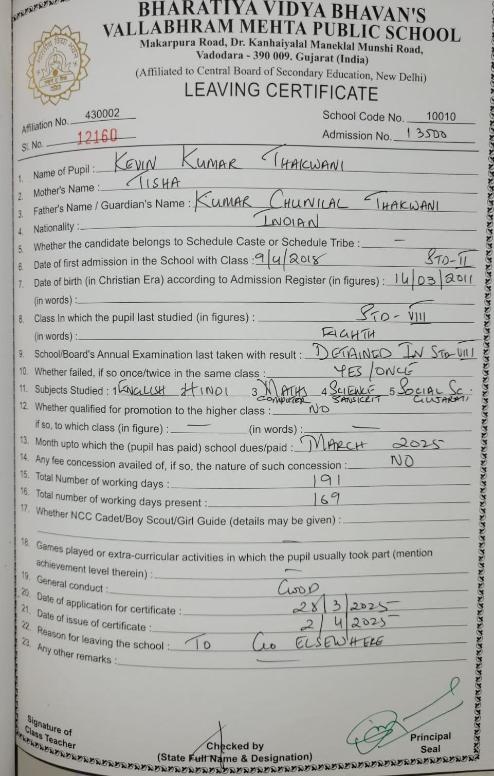 BHARATIYA VIDYA BHAVAN'S
VALLABHRAM MEHTA PUBLIC SCHOOL
Makarpura Road, Dr. Kanhaiyalal Maneklal Munshi Road,
Vadodara - 390 009. Gujarat (India)
(Affiliated to Central Board of Secondary Education, New Delhi)
LEAVING CERTIFICATE
Affiliation No. 430002 School Code No. 10010
Sl. No. 12160 Admission No. 13500
1. Name of Pupil : KEVIN KUMAR THAKWANI
2. Mother's Name : TISHA
3. Father's Name / Guardian's Name : KUMAR CHUNILAL THAKWANI
4. Nationality : INDIAN
5. Whether the candidate belongs to Schedule Caste or Schedule Tribe : —
6. Date of first admission in the School with Class : 9/4/2018 STD-II
7. Date of birth (in Christian Era) according to Admission Register (in figures) : 14/03/2011
(in words) :
8. Class In which the pupil last studied (in figures) : STD-VIII
(in words) : EIGHTH
9. School/Board's Annual Examination last taken with result : DETAINED IN STD VIII
10. Whether failed, if so once/twice in the same class : YES/ONCE
11. Subjects Studied : 1 ENGLISH HINDI 3 MATHS 4 SCIENCE 5 SOCIAL SC.
COMPUTER SANSKRIT GUJARATI
12. Whether qualified for promotion to the higher class : NO
if so, to which class (in figure) : — (in words) : —
13. Month upto which the (pupil has paid) school dues/paid : MARCH 2025
14. Any fee concession availed of, if so, the nature of such concession : NO
15. Total Number of working days : 191
16. Total number of working days present : 169
17. Whether NCC Cadet/Boy Scout/Girl Guide (details may be given) :
—
18. Games played or extra-curricular activities in which the pupil usually took part (mention
achievement level therein) : —
19. General conduct : GOOD
20. Date of application for certificate : 28/3/2025
21. Date of issue of certificate : 2/4/2025
22. Reason for leaving the school : TO GO ELSEWHERE
23. Any other remarks : —
Signature of
Class Teacher
Checked by
(State Full Name & Designation)
Principal
Seal